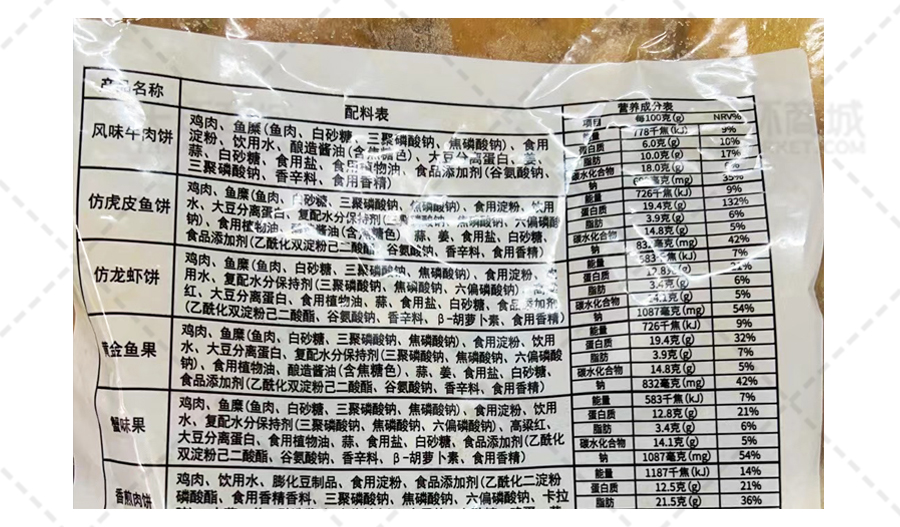 产品名称
配料表
营养成分表
项目 每100克(g) NRV%
风味牛肉饼
鸡肉、鱼糜(鱼肉、白砂糖、三聚磷酸钠、焦磷酸钠)、食用
淀粉、饮用水、酿造酱油(含焦糖色)、大豆分离蛋白、姜、
蒜、白砂糖、食用盐、食用植物油、食品添加剂(谷氨酸钠、
三聚磷酸钠、香辛料、食用香精)
能量 778千焦(kJ) 9%
蛋白质 6.0克(g) 10%
脂肪 10.0克(g) 17%
碳水化合物 18.0克(g)
钠 毫克(mg) 35%
仿虎皮鱼饼
鸡肉、鱼糜(鱼肉、白砂糖、三聚磷酸钠、焦磷酸钠)、食用淀粉、饮用
水、大豆分离蛋白、复配水分保持剂(三聚磷酸钠、焦磷酸钠、六偏磷酸
钠)、食用植物油、酱油(含焦糖色)、蒜、姜、食用盐、白砂糖、
食品添加剂(乙酰化双淀粉己二酸酯、谷氨酸钠、香辛料、食用香精)
能量 726千焦(kJ) 9%
蛋白质 19.4克(g) 132%
脂肪 3.9克(g) 6%
碳水化合物 14.8克(g) 5%
钠 832毫克(mg) 42%
仿龙虾饼
鸡肉、鱼糜(鱼肉、白砂糖、三聚磷酸钠、焦磷酸钠)、食用淀粉、
用水、复配水分保持剂(三聚磷酸钠、焦磷酸钠、六偏磷酸钠)、
红、大豆分离蛋白、食用植物油、蒜、食用盐、白砂糖、食品添加剂
(乙酰化双淀粉己二酸酯、谷氨酸钠、香辛料、β-胡萝卜素、食用香精)
能量 583千焦(kJ) 7%
蛋白质 12.8克(g) 21%
脂肪 3.4克(g) 6%
碳水化合物 14.1克(g) 5%
钠 1087毫克(mg) 54%
黄金鱼果
鸡肉、鱼糜(鱼肉、白砂糖、三聚磷酸钠、焦磷酸钠)、食用淀粉、饮用
水、大豆分离蛋白、复配水分保持剂(三聚磷酸钠、焦磷酸钠、六偏磷酸
钠)、食用植物油、酿造酱油(含焦糖色)、蒜、姜、食用盐、白砂糖、
食品添加剂(乙酰化双淀粉己二酸酯、谷氨酸钠、香辛料、食用香精)
能量 726千焦(kJ) 9%
蛋白质 19.4克(g) 32%
脂肪 3.9克(g) 7%
碳水化合物 14.8克(g) 5%
钠 832毫克(mg) 42%
蟹味果
鸡肉、鱼糜(鱼肉、白砂糖、三聚磷酸钠、焦磷酸钠)、食用淀粉、饮用
水、复配水分保持剂(三聚磷酸钠、焦磷酸钠、六偏磷酸钠)、高粱红、
大豆分离蛋白、食用植物油、蒜、食用盐、白砂糖、食品添加剂(乙酰化
双淀粉己二酸酯、谷氨酸钠、香辛料、β-胡萝卜素、食用香精)
能量 583千焦(kJ) 7%
蛋白质 12.8克(g) 21%
脂肪 3.4克(g) 6%
碳水化合物 14.1克(g) 5%
钠 1087毫克(mg) 54%
香煎肉饼
鸡肉、饮用水、膨化豆制品、食用淀粉、食品添加剂(乙酰化二淀粉
磷酸酯、食用香精香料、三聚磷酸钠、焦磷酸钠、六偏磷酸钠、卡拉
能量 1187千焦(kJ) 14%
蛋白质 12.5克(g) 21%
脂肪 21.5克(g) 36%